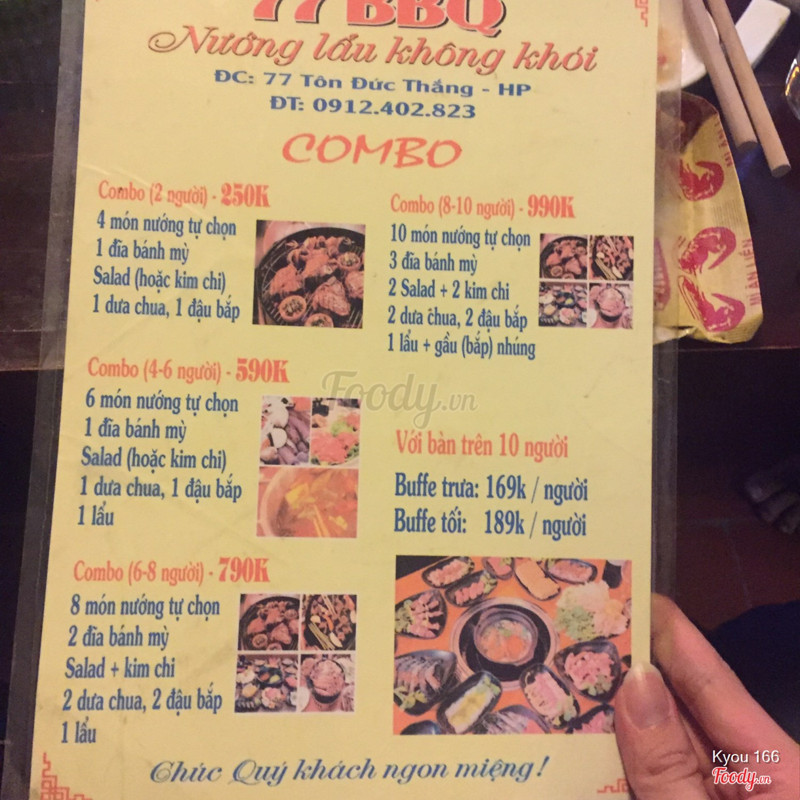 77 BBQ
Nướng lẩu không khói
ĐC: 77 Tôn Đức Thắng - HP
ĐT: 0912.402.823
COMBO
Combo (2 người) - 250K
4 món nướng tự chọn
1 đĩa bánh mỳ
Salad (hoặc kim chi)
1 dưa chua, 1 đậu bắp
Combo (4-6 người) - 590K
6 món nướng tự chọn
1 đĩa bánh mỳ
Salad (hoặc kim chi)
1 dưa chua, 1 đậu bắp
1 lẩu
Combo (6-8 người) - 790K
8 món nướng tự chọn
2 đĩa bánh mỳ
Salad + kim chi
2 dưa chua, 2 đậu bắp
1 lẩu
Combo (8-10 người) - 990K
10 món nướng tự chọn
3 đĩa bánh mỳ
2 Salad + 2 kim chi
2 dưa chua, 2 đậu bắp
1 lẩu + gầu (bắp) nhúng
Với bàn trên 10 người
Buffe trưa: 169k / người
Buffe tối: 189k / người
Chúc Quý khách ngon miệng!
Foody.vn
MI ĂN LIỀN
Kyou 166
Foody.vn